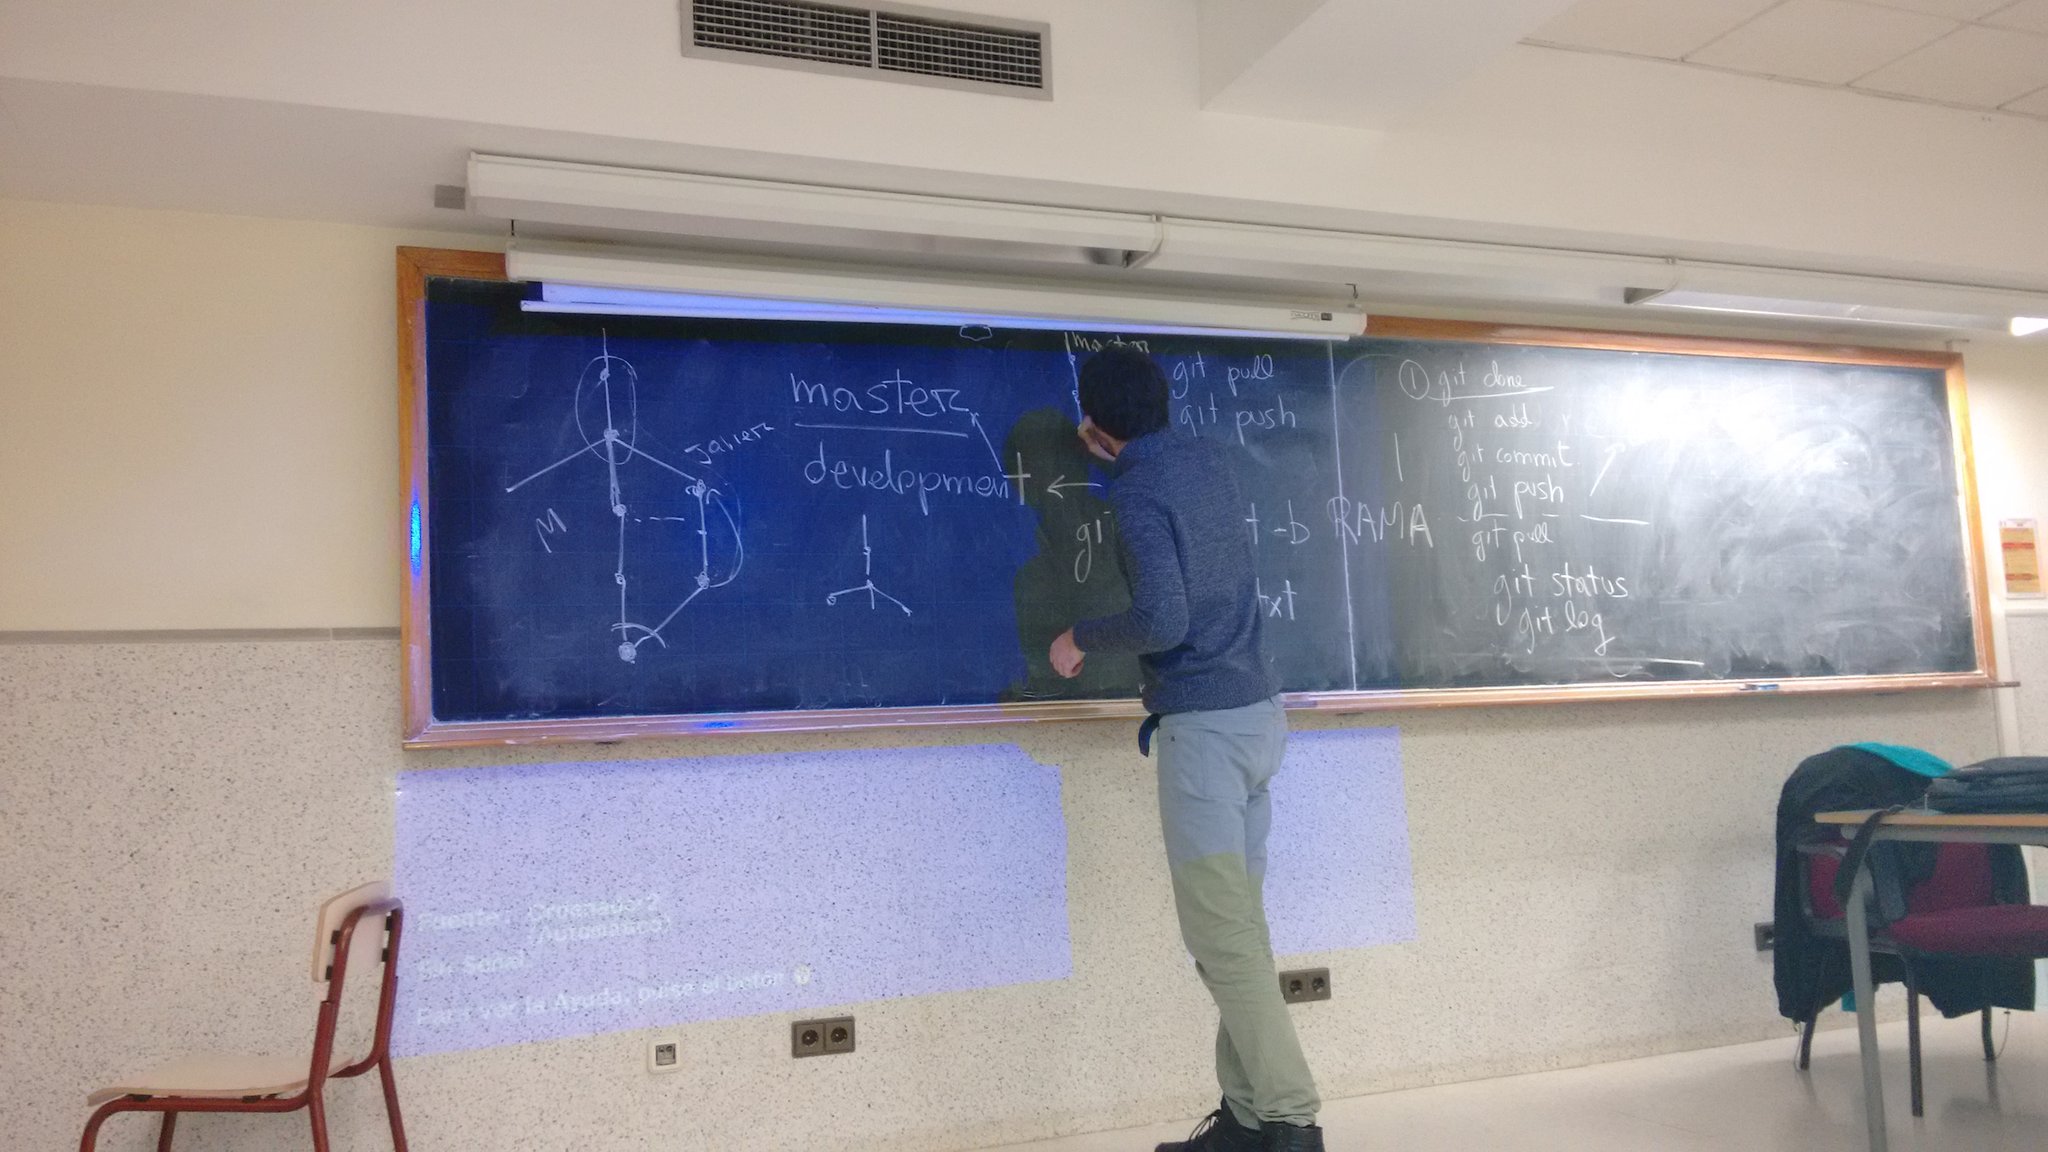 master
development
Javier
M
master
git pull
git push
-b RAMA
txt
① git clone
git add
git commit.
git push
git pull
git status
git log
Fuente: Ordenador2
(Automático)
Sin Señal
Para ver la Ayuda, pulse el botón ?